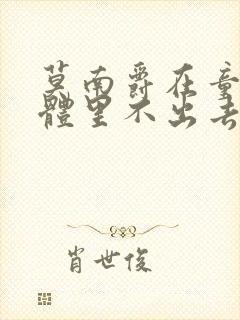 莫南爵在童
體里不出去
肖世俊